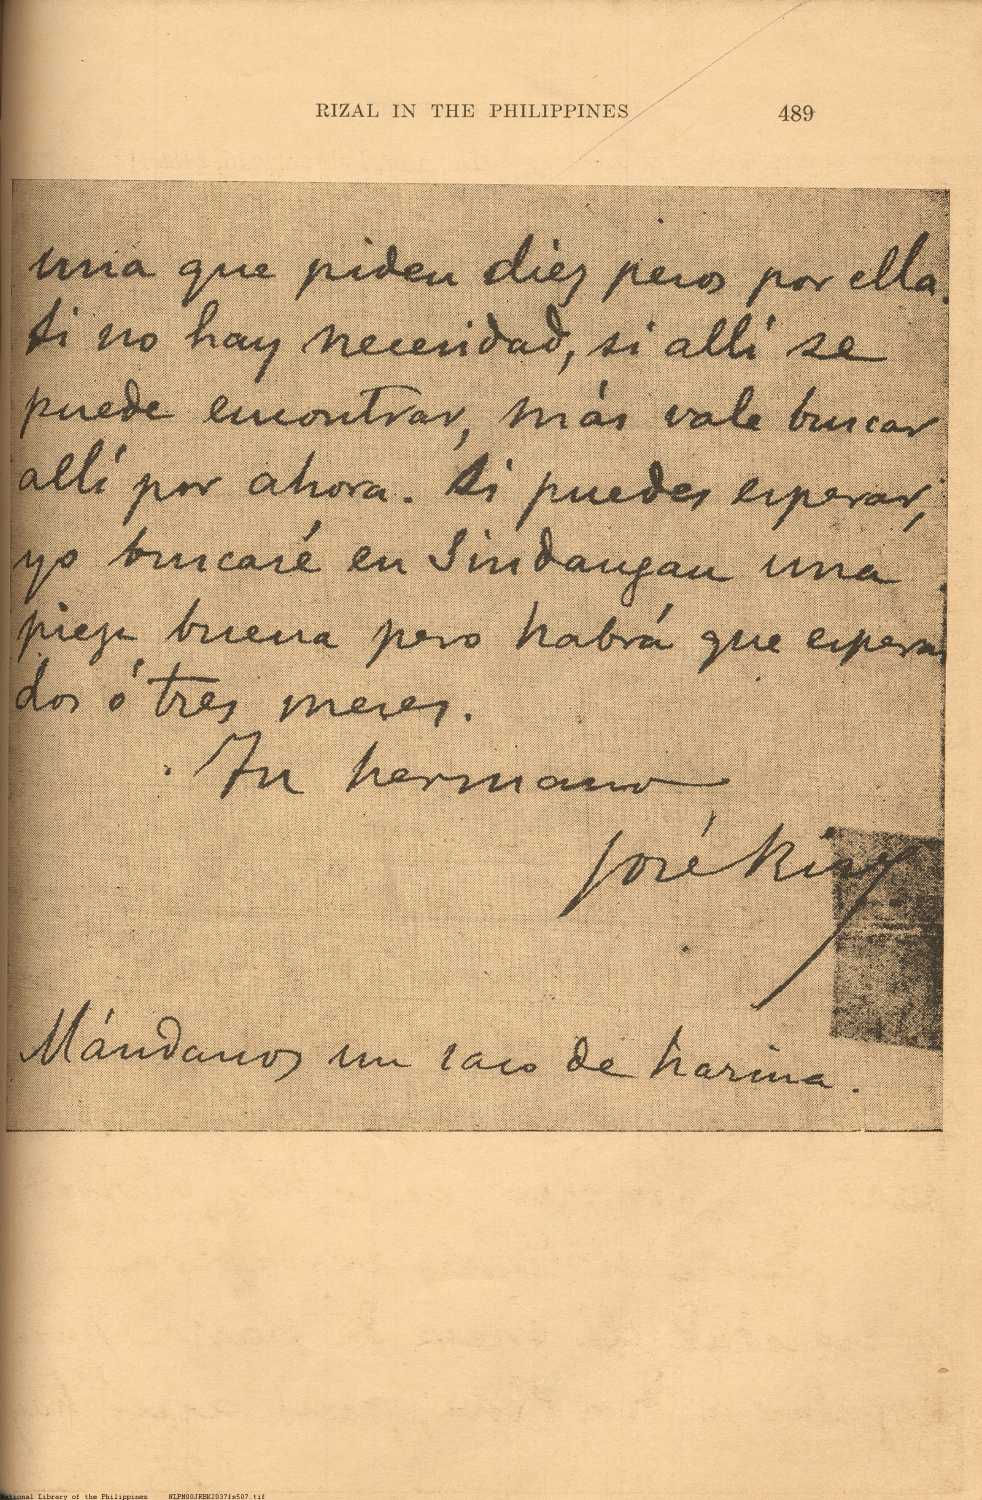 RIZAL IN THE PHILIPPINES 489
una que piden diez pesos por ella.
Si no hay necesidad, si allí se
puede encontrar, más vale buscar
allí por ahora. Si puedes esperar,
yo buscaré en Sindangan una
pieza buena pero habrá que esperar
dos ó tres meses.
Tu hermano
José Rizal
Mándanos un saco de harina.
National Library of the Philippines NLPM00JRBK2037fs507.tif